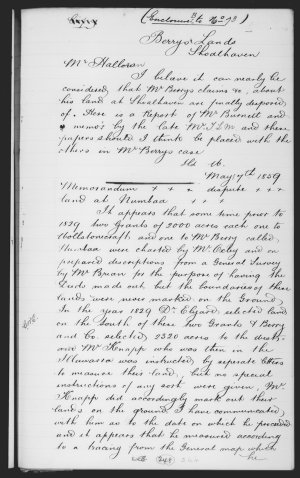 (Enclosure 3 to No 73)
Berry's Lands
Shoalhaven
Mr Halloran
I believe it can nearly be
considered, that Mr Berry's claims &c. about
his land at Shoalhaven are finally disposed
of. Here is a Report of Mr Burnett and
memo's by the late M. and these
papers should I think be placed with the
others in Mr Berry's case
May 7th 1859
Memorandum + + + dispute + + +
land at Numbaa + +
It appears that some time prior to
1829 two Grants of 2000 acres each one to
Wollstonecraft and one to Mr Berry called
Numbaa were charted by Mr Ogby and on
prepared descriptions from a General Survey
by Mr Brian for the purpose of having the
Deeds made out but the boundaries of these
lands were never marked on the Ground,
In the year 1829 Dr Elyard selected land
on the South of these two Grants & Berry
and Co selected 2320 acres to the
Mr Knapp who was then in the
Illawarra was instructed by seperate letters
to measure their land, but no special
instructions of any sort were given, Mr.
Knapp did accordingly mark out their
lands on the ground I have communicated
with him as to the date on which he proceeded
and it appears that he measured according
to a tracing from the General map which
he